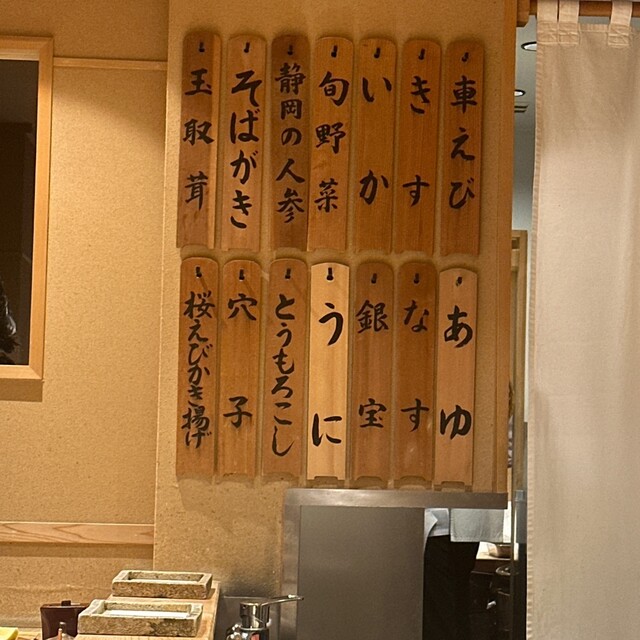 車えび
きす
いか
旬野菜
静岡の人参
そばがき
玉取茸
あゆ
なす
銀宝
うに
とうもろこし
穴子
桜えびかき揚げ